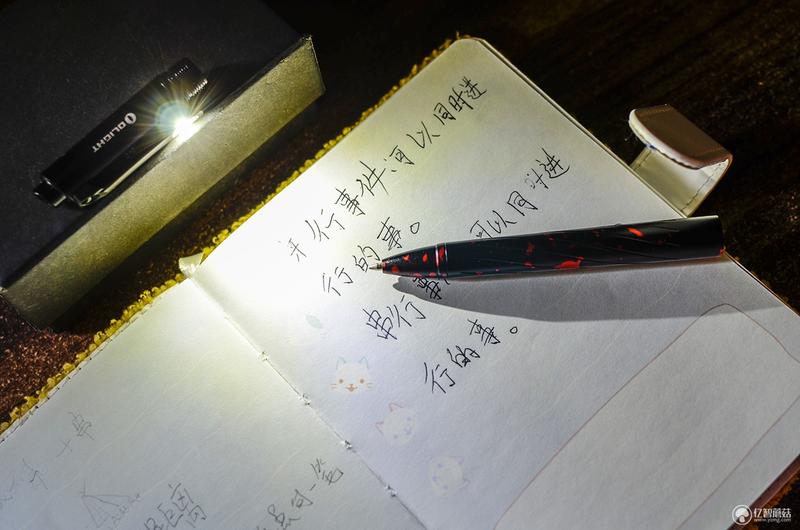 OLIGHT
并行事件:可以同时进
行的事。
串行事 可以同时进
行的事。
亿智蘑菇
www.yzmg.com